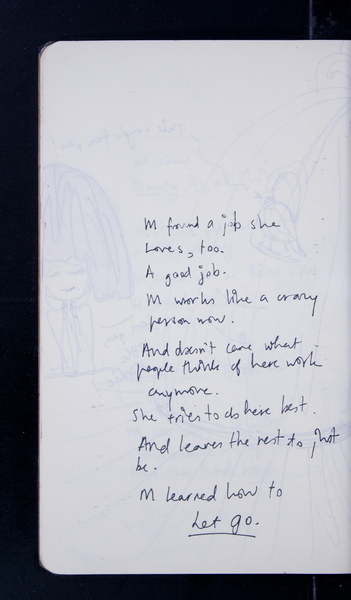 M found a job she
Loves, too.
A good job.
M works like a crazy
person now.
And doesn't care what
people think of here work
anymore.
She tries to do here best.
And leaves the rest to just
be.
M learned how to
Let go.